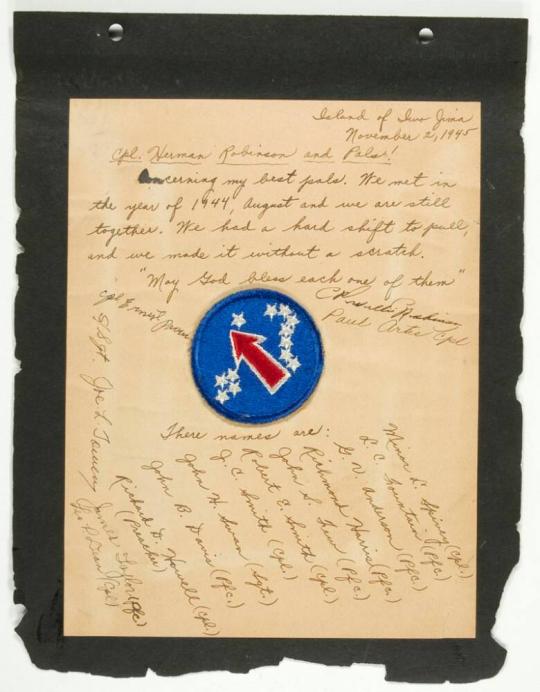 Island of Iwo Jima
November 2, 1945
Cpl. Herman Robinson and Pals!
Concerning my best pals. We met in
the year of 1944, August and we are still
together. We had a hard shift to pull,
and we made it without a scratch.
"May God bless each one of them"
Paul Artis Cpl
Cpl Ernest
S/Sgt. Joe L.
There names are:
Minor L. Spivey (Cpl)
L. C. Fountain (Pfc.)
G. V. Anderson (Pfc.)
Richmond Harris (Pfc.)
John S. (Pfc.)
Robert E. Smith (Cpl.)
J. C. Smith (Cpl)
John H. (Sgt.)
John B. Davis (Pfc.)
Richard D. (Cpl)
(Preacher)
James (Pfc)
(Cpl)